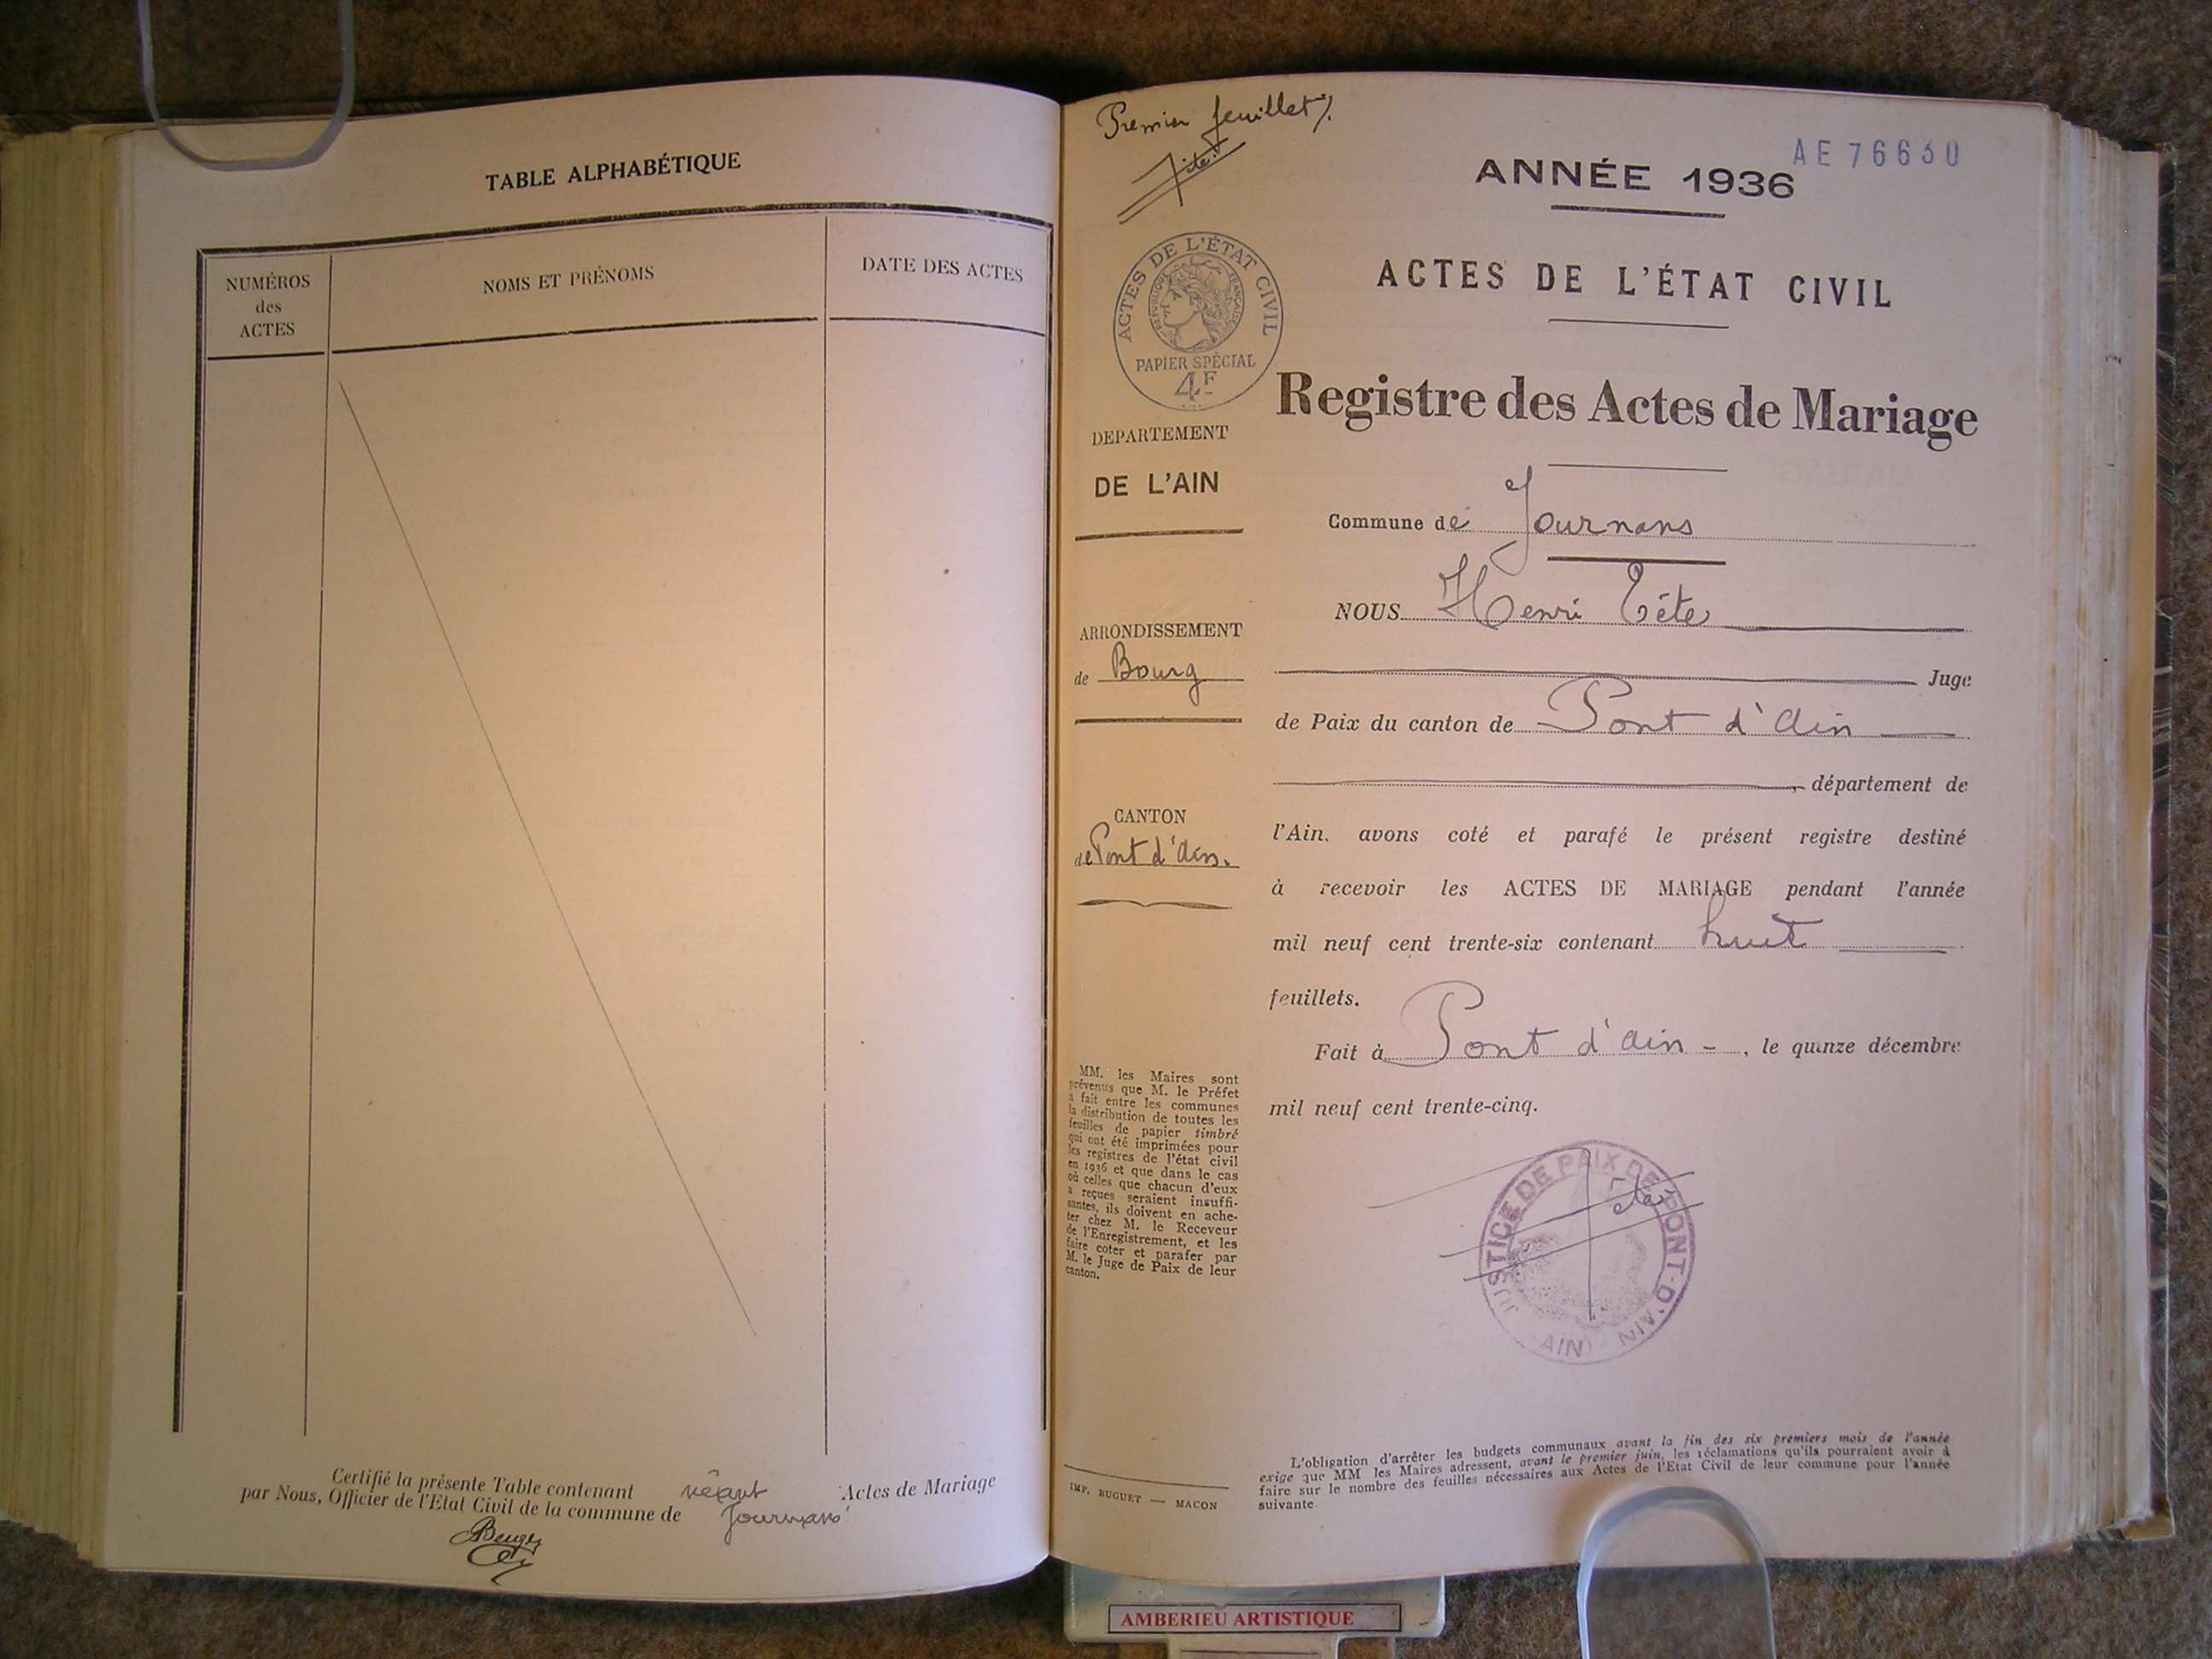 TABLE ALPHABÉTIQUE
NUMÉROS
des
ACTES
NOMS ET PRÉNOMS
DATE DES ACTES
Certifié la présente Table contenant néant Actes de Mariage
par Nous, Officier de l'Etat Civil de la commune de Journans
Premier feuillet
AE 76630
ANNÉE 1936
ACTES DE L'ÉTAT CIVIL
RÉPUBLIQUE FRANÇAISE
PAPIER SPÉCIAL
4F
ACTES DE L'ÉTAT CIVIL
Registre des Actes de Mariage
DEPARTEMENT
DE L'AIN
Commune de Journans
NOUS Henri Tête
ARRONDISSEMENT
de Bourg
Juge
de Paix du canton de Pont d'Ain
département de
CANTON
de Pont d'Ain.
l'Ain. avons coté et parafé le présent registre destiné
à recevoir les ACTES DE MARIAGE pendant l'année
mil neuf cent trente-six contenant huit
feuillets.
Fait à Pont d'Ain -, le quinze décembre
mil neuf cent trente-cinq.
MM. les Maires sont
prévenus que M. le Préfet
a fait entre les communes
la distribution de toutes les
feuilles de papier timbré
qui ont été imprimées pour
les registres de l'état civil
en 1936 et que dans le cas
où celles que chacun d'eux
a reçues seraient insuffi-
santes, ils doivent en ache-
ter chez M. le Receveur
de l'Enregistrement, et les
faire coter et parafer par
M. le Juge de Paix de leur
canton.
JUSTICE DE PAIX DE PONT-D'AIN
AIN
L'obligation d'arrêter les budgets communaux avant la fin des six premiers mois de l'année
exige que MM les Maires adressent, avant le premier juin, les réclamations qu'ils pourraient avoir à
faire sur le nombre des feuilles nécessaires aux Actes de l'Etat Civil de leur commune pour l'année
suivante.
IMP. BUGUET — MACON
AMBERIEU ARTISTIQUE